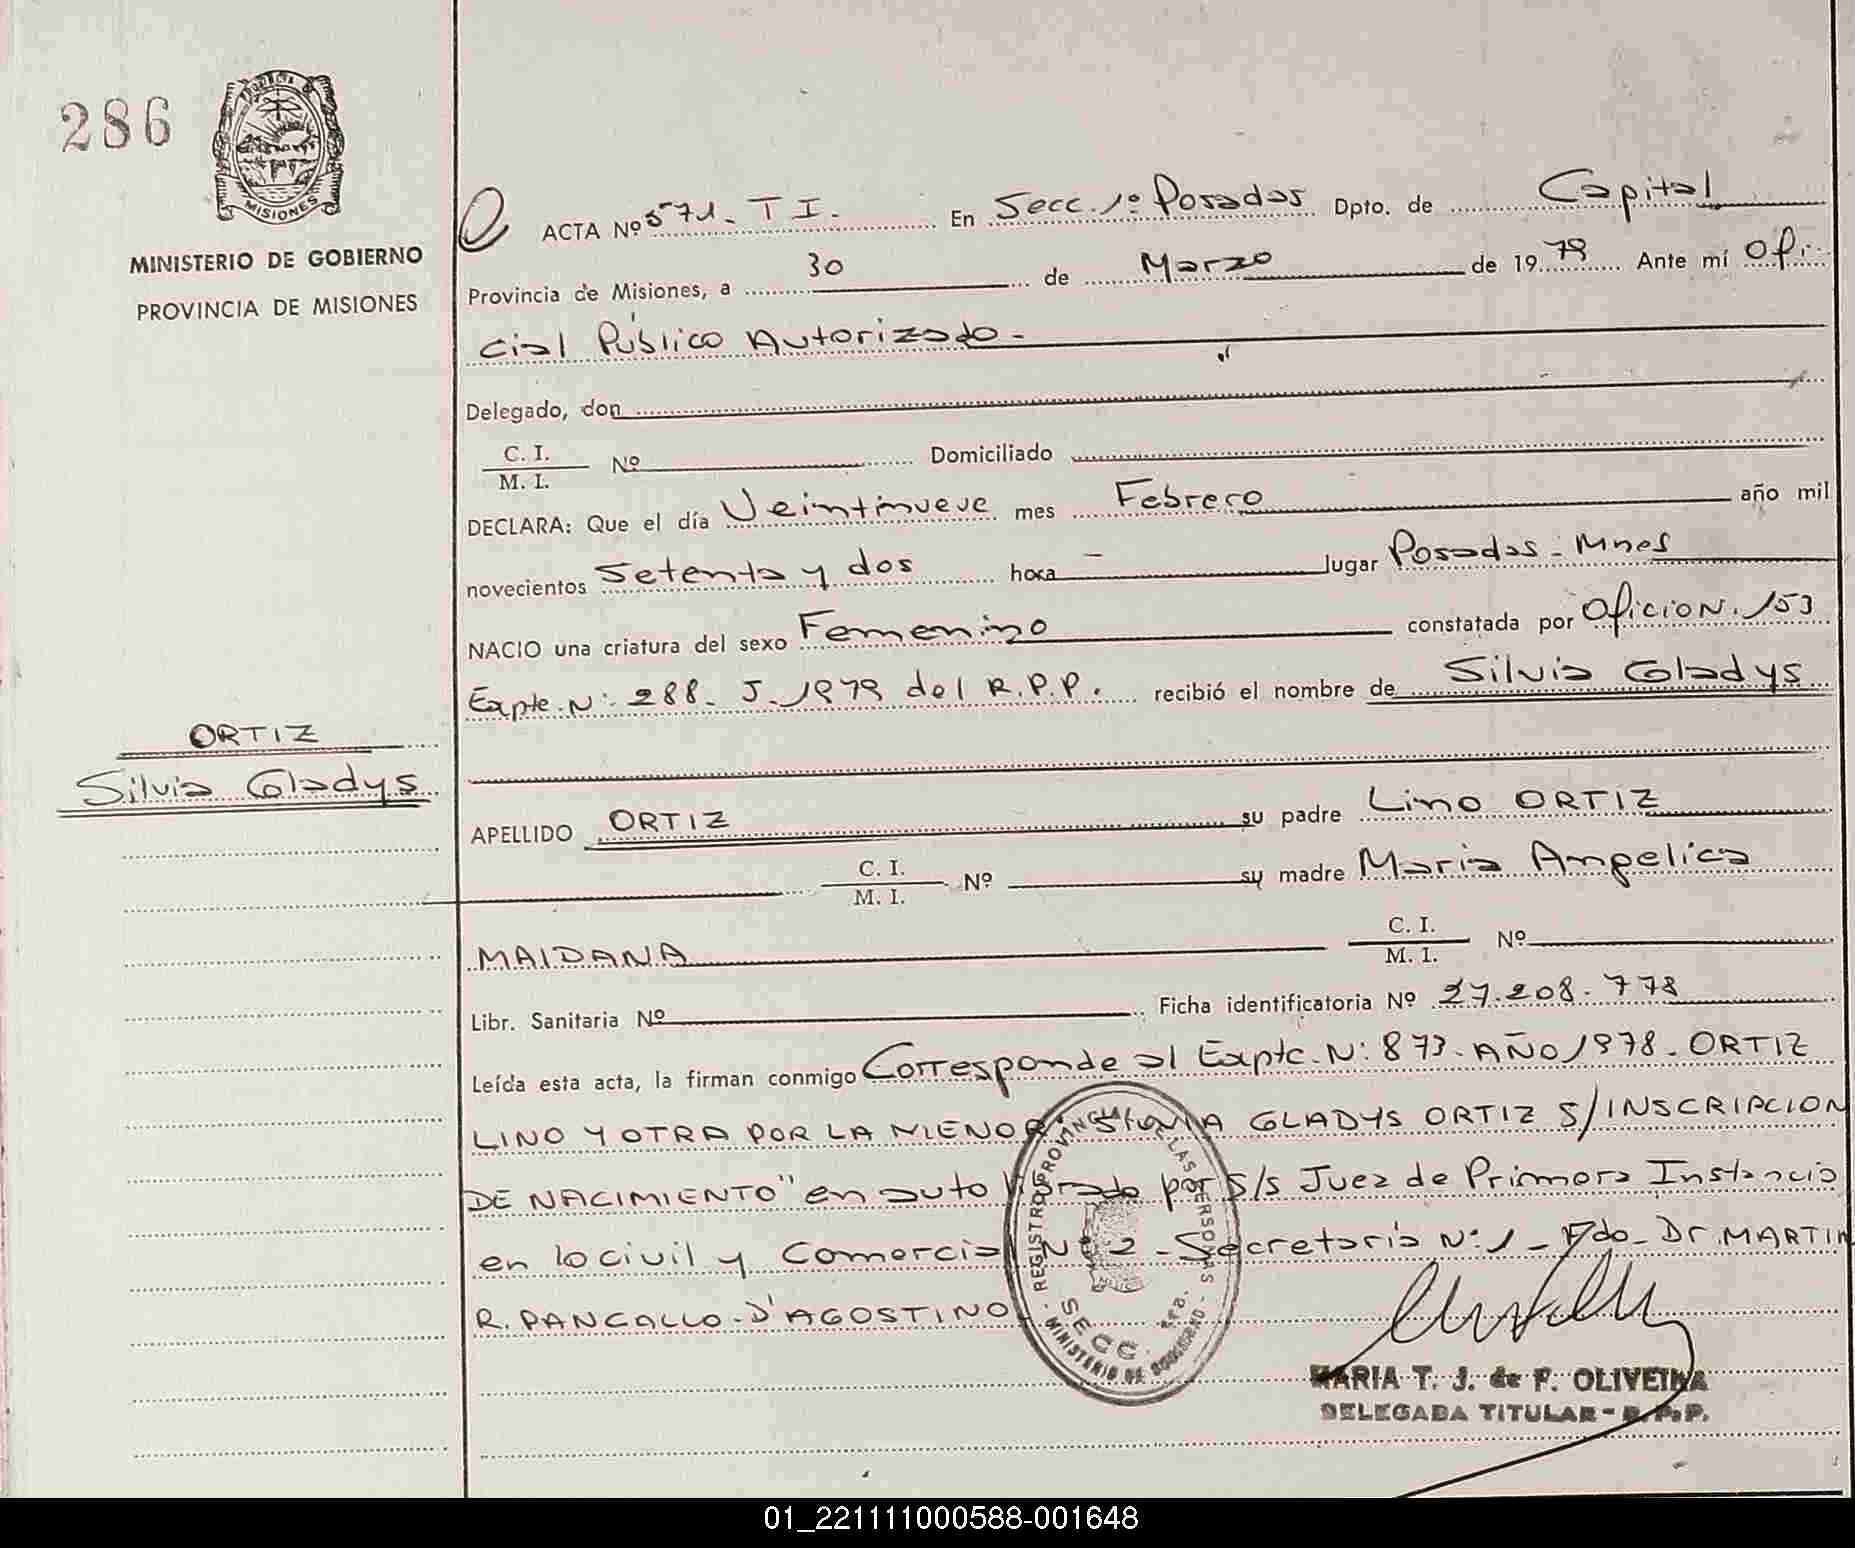 286
MISIONES
MINISTERIO DE GOBIERNO
PROVINCIA DE MISIONES
ACTA Nº 571 - T I. En Secc. 1º Posadas Dpto. de Capital
Provincia de Misiones, a 30 de Marzo de 1979 Ante mí Ofi-
cial Público Autorizado -
Delegado, don
C. I.
M. I. Nº Domiciliado
DECLARA: Que el día Veintinueve mes Febrero año mil
novecientos Setenta y dos hora - lugar Posadas - Mnes
NACIO una criatura del sexo Femenino constatada por Oficio N. 153
Expte. N: 288 - J - 1979 del R.P.P. recibió el nombre de Silvia Gladys
ORTIZ
Silvia Gladys
APELLIDO ORTIZ su padre Lino ORTIZ
C. I.
M. I. Nº su madre Maria Angelica
MAIDANA C. I.
M. I. Nº
Libr. Sanitaria Nº Ficha identificatoria Nº 27.208.778
Leída esta acta, la firman conmigo Corresponde al Expte. N: 873 - AÑO 1978 - ORTIZ
LINO Y OTRA POR LA MENOR SILVIA GLADYS ORTIZ S/INSCRIPCION
DE NACIMIENTO" en auto librado por S/s Juez de Primera Instancia
en lo civil y Comercial N: 2 - Secretaria N: 1 - Fdo - Dr. MARTIN
R. PANCALLO - D'AGOSTINO
REGISTRO PROVINCIAL DE LAS PERSONAS
SECC. 1ra.
MINISTERIO DE GOBIERNO
MARIA T. J. de F. OLIVEIRA
DELEGADA TITULAR - R.P.P.
01_221111000588-001648